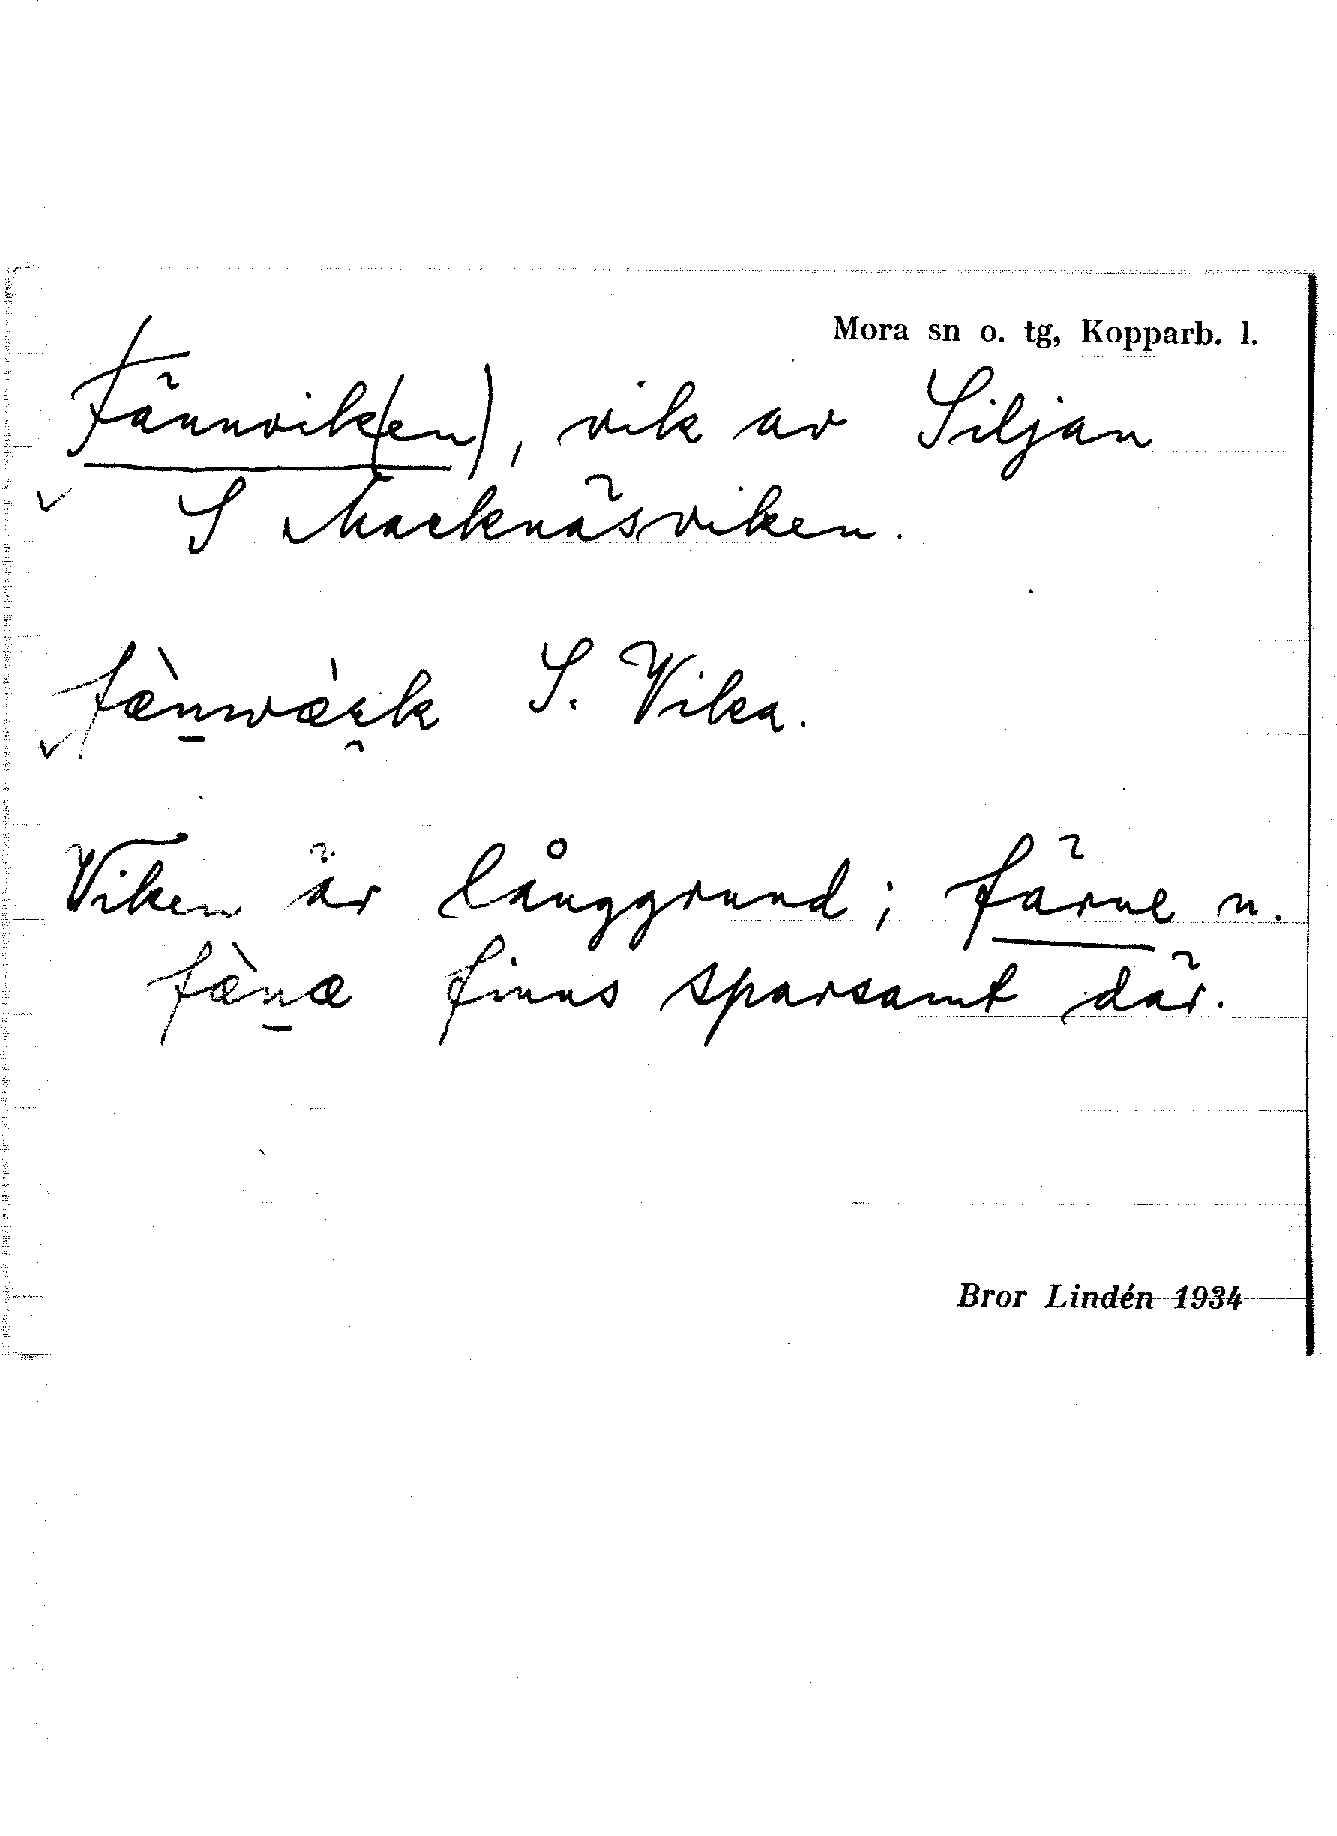 Mora sn o. tg, Kopparb. l.
Fännvik(en), vik av Siljan
S Macknäsviken.
fæ̀n̠wæ̀ɛ̯k S. Vika.
Viken är långgrund; färne n.
fæ̀n̠æ finns sparsamt där.
Bror Lindén 1934